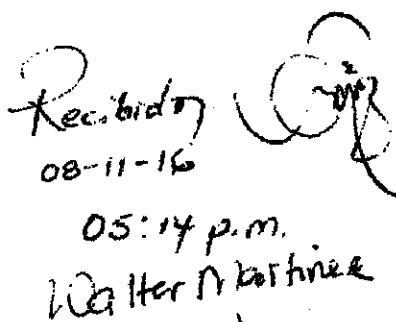 Recibido
08-11-16
05:14 p.m.
Walter Martinez